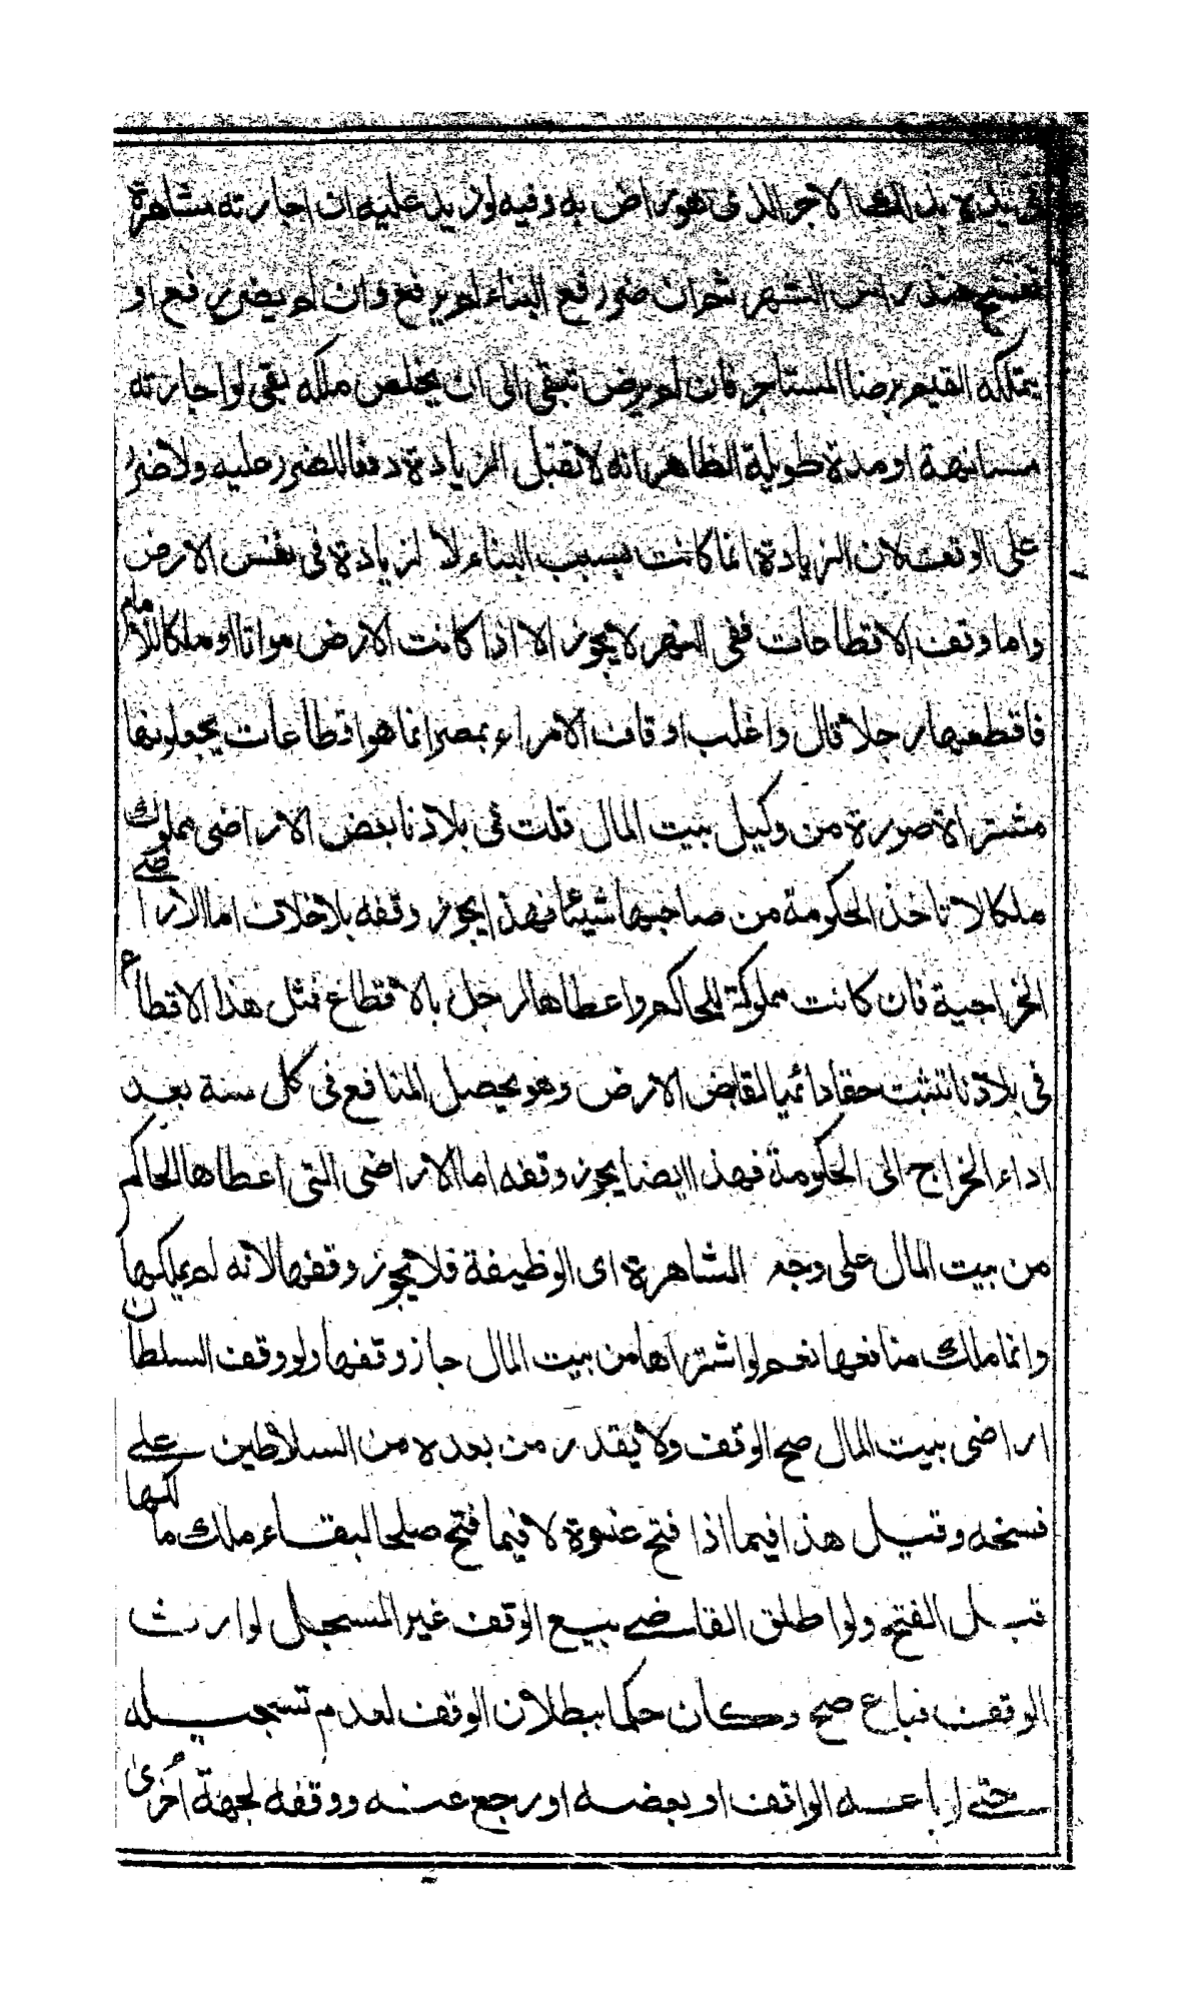 في يده بذلك الاجر الذي هو راض به وفيه لو زيد عليه ان اجارته مشاهرة
تفسخ عند راس الشهر ثم ان ضر رفع البناء لم يرفع وان لم يضر يرفع او
يتملكه القيم برضا المستاجر فان لم يرض تبقى الى ان يخلص ملكه بقى لو اجارته
مسانهة او مدة طويلة الظاهر انه لا تقبل الزيادة دفعا للضرر عليه ولا ضرر
على الوقف لان الزيادة انما كانت بسبب البناء لا لزيادة في نفس الارض
واما وقف الاقطاعات ففي النهر لا يجوز الا اذا كانت الارض مواتا او ملكا للامام
فاقطعها رجلا قال واغلب اوقاف الامراء بمصر انما هو اقطاعات يجعلونها
مشتراة صورة من وكيل بيت المال قلت في بلادنا بعض الاراضي مملوك
ملكا لا تاخذ الحكومة من صاحبها شيئا فهذا يجوز وقفه بلا خلاف اما الاراضي
الخراجية فان كانت مملوكة للحاكم واعطاها لرجل بالاقطاع فمثل هذا الاقطاع
في بلادنا تثبت حقا دائميا لقابض الارض وهو يحصل المنافع في كل سنة بعد
اداء الخراج الى الحكومة فهذا ايضا يجوز وقفه اما الاراضي التي اعطاها الحاكم
من بيت المال على وجه المشاهرة اى الوظيفة فلا يجوز وقفها لانه لم يملكها
وانما ملك منافعها نعم لو اشتراها من بيت المال جاز وقفها ولو وقف السلطان
اراضي بيت المال صح الوقف ولا يقدر من بعده من السلاطين على
فسخه وقيل هذا فيما اذا فتح عنوة لا فيما فتح صلحا لبقاء ملك مالكها
قبل الفتح ولو اطلق القاضي بيع الوقف غير المسجل لوارث
الوقف فباع صح وكان حكما ببطلان الوقف لعدم تسجيله
حتى لو باعه الواقف او بعضه او رجع عنه ووقفه لجهة اُخرىٰ